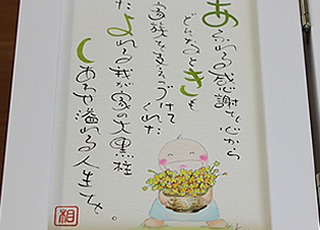 あふれる感謝を心から
どんなときも
家族を支えつづけてくれた
たよれる我が家の大黒柱
しあわせ溢れる人生を。
相